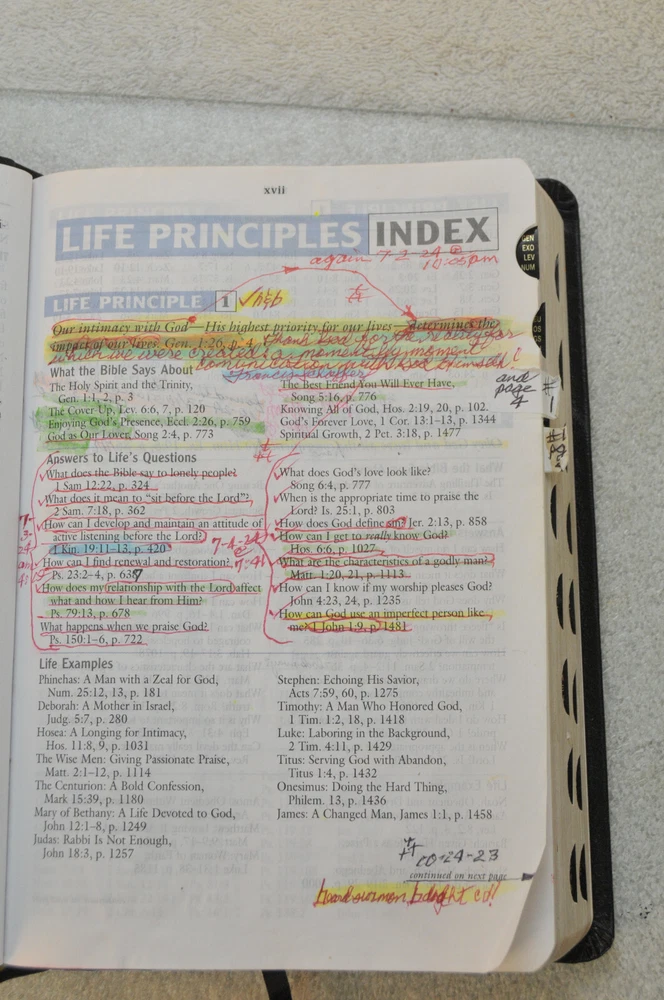 xvii
LIFE PRINCIPLES INDEX
again 7-2-24 @
10:05pm
GEN
EXO
LEV
NUM
LIFE PRINCIPLE 1
Our intimacy with God—His highest priority for our lives—determines the
impact of our lives. Gen. 1:26, p. 4 Thank God for the reality for
which we were created a moment by moment
communication with God Himself!
and
page
4
What the Bible Says About
The Holy Spirit and the Trinity,
Gen. 1:1, 2, p. 3
The Cover Up, Lev. 6:6, 7, p. 120
Enjoying God's Presence, Eccl. 2:26, p. 759
God as Our Lover, Song 2:4, p. 773
The Best Friend You Will Ever Have,
Song 5:16, p. 776
Knowing All of God, Hos. 2:19, 20, p. 102.
God's Forever Love, 1 Cor. 13:1–13, p. 1344
Spiritual Growth, 2 Pet. 3:18, p. 1477
Answers to Life's Questions
What does the Bible say to lonely people?
1 Sam 12:22, p. 324
What does it mean to "sit before the Lord"?
2 Sam. 7:18, p. 362
How can I develop and maintain an attitude of
active listening before the Lord?
1 Kin. 19:11–13, p. 420
How can I find renewal and restoration?
Ps. 23:2–4, p. 637
How does my relationship with the Lord affect
what and how I hear from Him?
Ps. 79:13, p. 678
What happens when we praise God?
Ps. 150:1–6, p. 722
7-4-24
What does God's love look like?
Song 6:4, p. 777
When is the appropriate time to praise the
Lord? Is. 25:1, p. 803
How does God define sin? Jer. 2:13, p. 858
How can I get to really know God?
Hos. 6:6, p. 1027
What are the characteristics of a godly man?
Matt. 1:20, 21, p. 1113
How can I know if my worship pleases God?
John 4:23, 24, p. 1235
How can God use an imperfect person like
me? 1 John 1:9, p. 1481
Life Examples
Phinehas: A Man with a Zeal for God,
Num. 25:12, 13, p. 181
Deborah: A Mother in Israel,
Judg. 5:7, p. 280
Hosea: A Longing for Intimacy,
Hos. 11:8, 9, p. 1031
The Wise Men: Giving Passionate Praise,
Matt. 2:1–12, p. 1114
The Centurion: A Bold Confession,
Mark 15:39, p. 1180
Mary of Bethany: A Life Devoted to God,
John 12:1–8, p. 1249
Judas: Rabbi Is Not Enough,
John 18:3, p. 1257
Stephen: Echoing His Savior,
Acts 7:59, 60, p. 1275
Timothy: A Man Who Honored God,
1 Tim. 1:2, 18, p. 1418
Luke: Laboring in the Background,
2 Tim. 4:11, p. 1429
Titus: Serving God with Abandon,
Titus 1:4, p. 1432
Onesimus: Doing the Hard Thing,
Philem. 13, p. 1436
James: A Changed Man, James 1:1, p. 1458
continued on next page